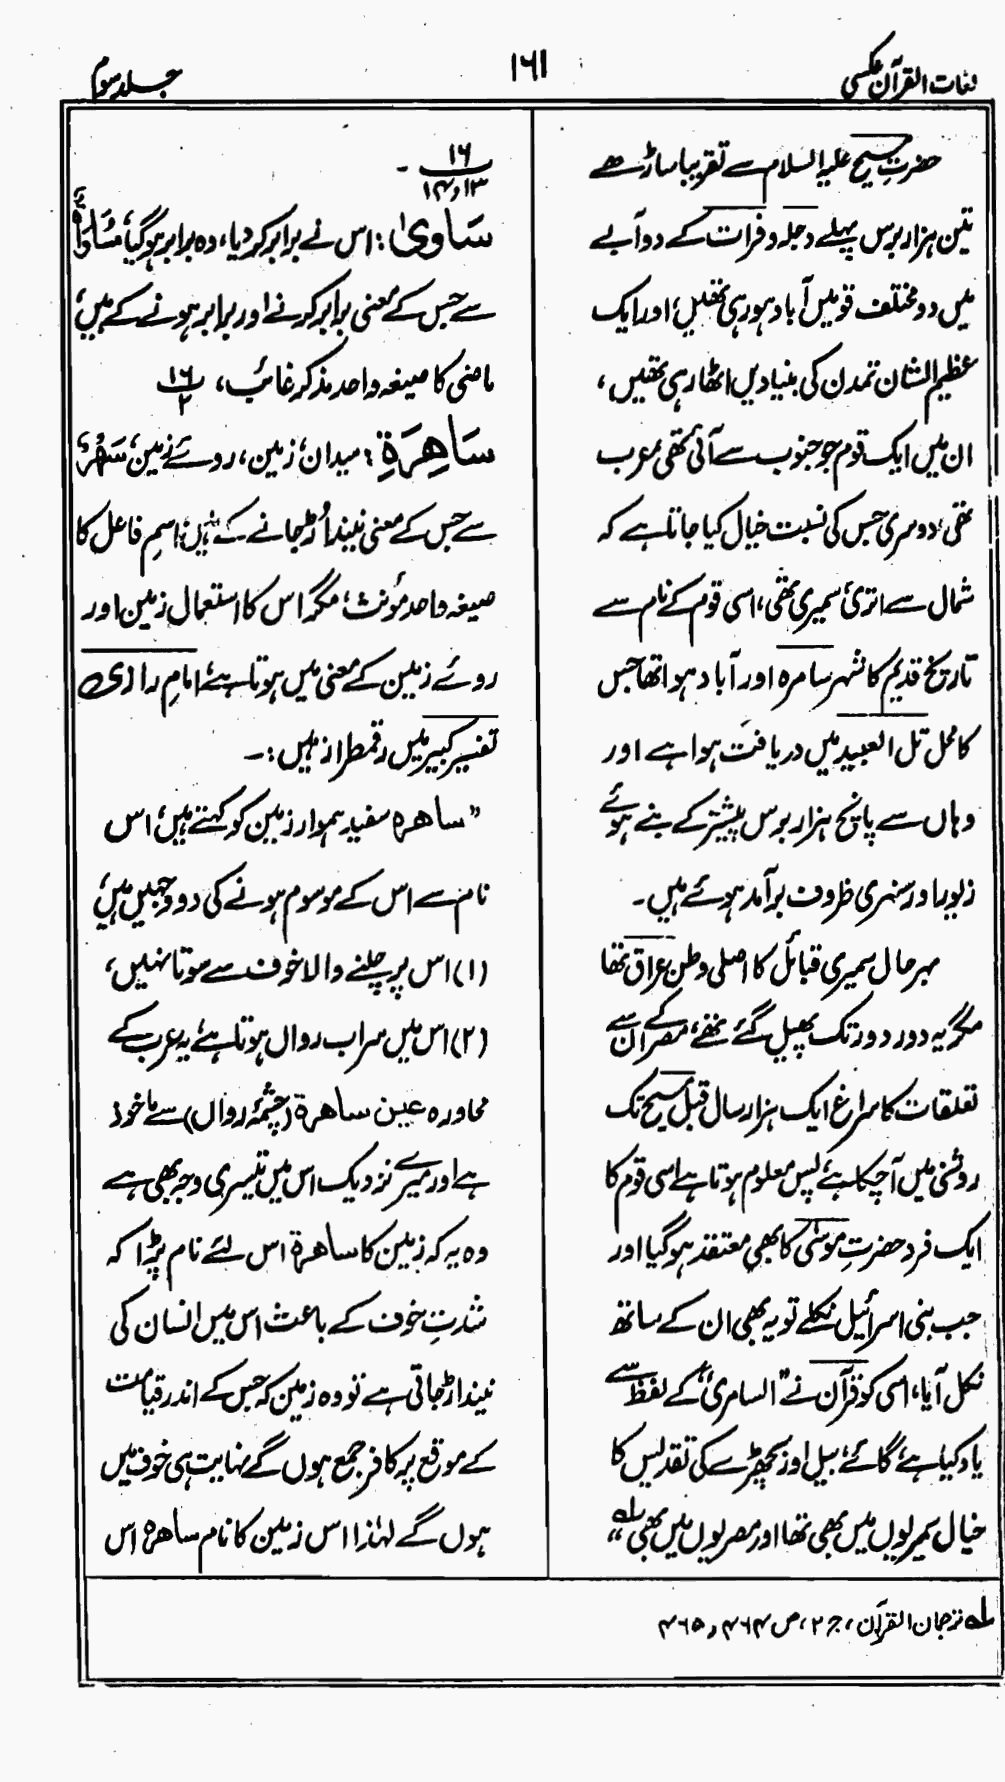 لغات القرآن عکسی
۱۶۱
جلد سوم
حضرت مسیح علیہ السلام سے تقریبا ساڑھے
تین ہزار برس پہلے دجلہ و فرات کے دوآبے
میں دو مختلف قومیں آباد ہو رہی تھیں، اور ایک
عظیم الشان تمدن کی بنیادیں اٹھا رہی تھیں،
ان میں ایک قوم جو جنوب سے آئی تھی عرب
تھی، دوسری جس کی نسبت خیال کیا جاتا ہے کہ
شمال سے اتری سمیری تھی، اسی قوم کے نام سے
تاریخ قدیم کا شہر سامرہ اور آباد ہوا تھا جس
کا محل تل العبید میں دریافت ہوا ہے اور
وہاں سے پانچ ہزار برس پیشتر کے بنے ہوئے
زیور اور سنہری ظروف برآمد ہوئے ہیں۔
بہر حال سمیری قبائل کا اصلی وطن عراق تھا
مگر یہ دور دور تک پھیل گئے تھے، مصر کے ان سے
تعلقات کا سراغ ایک ہزار سال قبل مسیح تک
روشنی میں آچکا ہے، پس معلوم ہوتا ہے اسی قوم کا
ایک فرد حضرت موسیٰ کا بھی معتقد ہو گیا اور
جب بنی اسرائیل نکلے تو یہ بھی ان کے ساتھ
نکل آیا، اسی کو قرآن نے "السامری" کے لفظ سے
یاد کیا ہے، گائے، بیل اور بچھڑے کی تقدیس کا
خیال سمیریوں میں بھی تھا اور مصریوں میں بھی لہ"
۱۶
۱۳ و ۱۴ ۔
سَاویٰ: اس نے برابر کر دیا، وہ برابر ہو گیا، مُسَاوَاۃٌ
سے جس کے معنی برابر کرنے اور برابر ہونے کے ہیں،
ماضی کا صیغہ واحد مذکر غائب، ۱۶
۲
سَاهِرَةِ: میدان، زمین، روئے زمین، سَهَرٌ
سے جس کے معنی نیند اُڑ جانے کے ہیں، اسم فاعل کا
صیغہ واحد مؤنث، مگر اس کا استعمال زمین اور
روئے زمین کے معنی میں ہوتا ہے، امام رازی
تفسیر کبیر میں رقمطراز ہیں:۔
"ساھرہ سفید ہموار زمین کو کہتے ہیں، اس
نام سے اس کے موسوم ہونے کی دو وجہیں ہیں،
(۱) اس پر چلنے والا خوف سے سوتا نہیں،
(۲) اس میں سراب رواں ہوتا ہے، یہ عرب کے
محاورہ عین ساھرة (چشمۂ رواں) سے ماخوذ
ہے اور میرے نزدیک اس میں تیسری وجہ بھی ہے
وہ یہ کہ زمین کا ساھرة اس لئے نام پڑا کہ
شدتِ خوف کے باعث اس میں انسان کی
نیند اڑ جاتی ہے تو وہ زمین کہ جس کے اندر قیامت
کے موقع پر کافر جمع ہوں گے نہایت ہی خوف میں
ہوں گے لہٰذا اس زمین کا نام ساھرہ اس
لہ ترجمان القرآن، ج ۲، ص ۴۶۴ و ۴۶۵